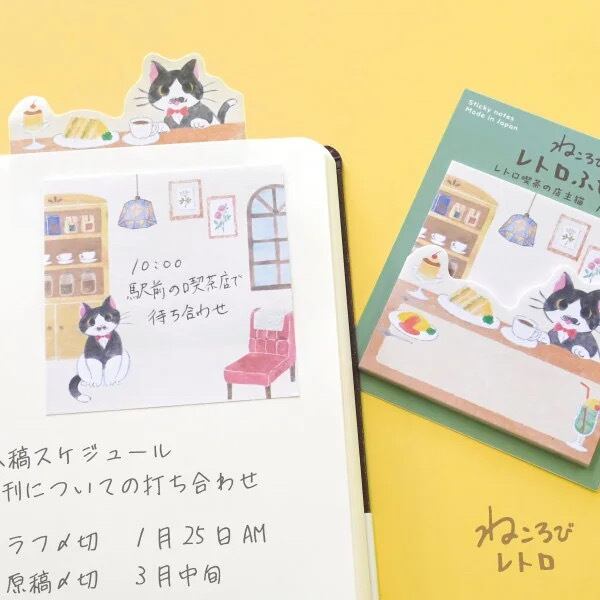 10:00
駅前の喫茶店で
待ち合わせ
稿スケジュール
刊についての打ち合わせ
ラフ〆切 1月25日AM
原稿〆切 3月中旬
Sticky notes
Made in Japan
ねころび
レトロふ
レトロ喫茶の店主猫
ねころび
レトロ